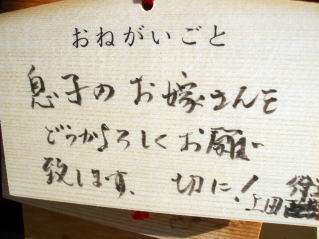 おねがいごと
息子のお嫁さんを
どうかよろしくお願い
致します、切に!
上田